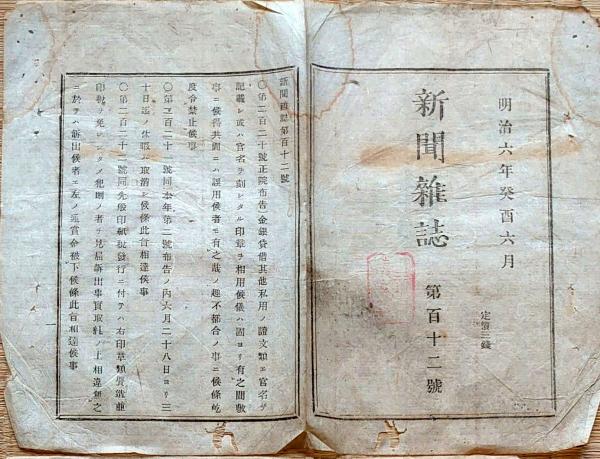 明治六年癸酉六月
新聞雜誌
第百十二號
定價三錢
新聞雜誌第百十二號
〇第二百二十號正院布告金銀貸借其他私用ノ證文類ニ官名ヲ
記載シ或ハ官名ヲ刻シタル印章ヲ相用候儀ハ固ヨリ有之間敷
事ニ候得共間ニハ誤用候者モ有之哉ノ趣不都合ノ事ニ候條屹
度令禁止候事
〇第二百二十一號同本年第二號布告ノ内六月二十八日ヨリ三
十日迄ノ休暇ハ取消シ候條此旨相達候事
〇第二百二十二號同先般印紙税發行ニ付テハ右印章類贋造並
印税ヲ
犯則ノ者ヲ見届訴出事實取糺ノ上相違無之
ニ於テハ訴出候者エ左ノ通賞金被下候條此旨相達候事